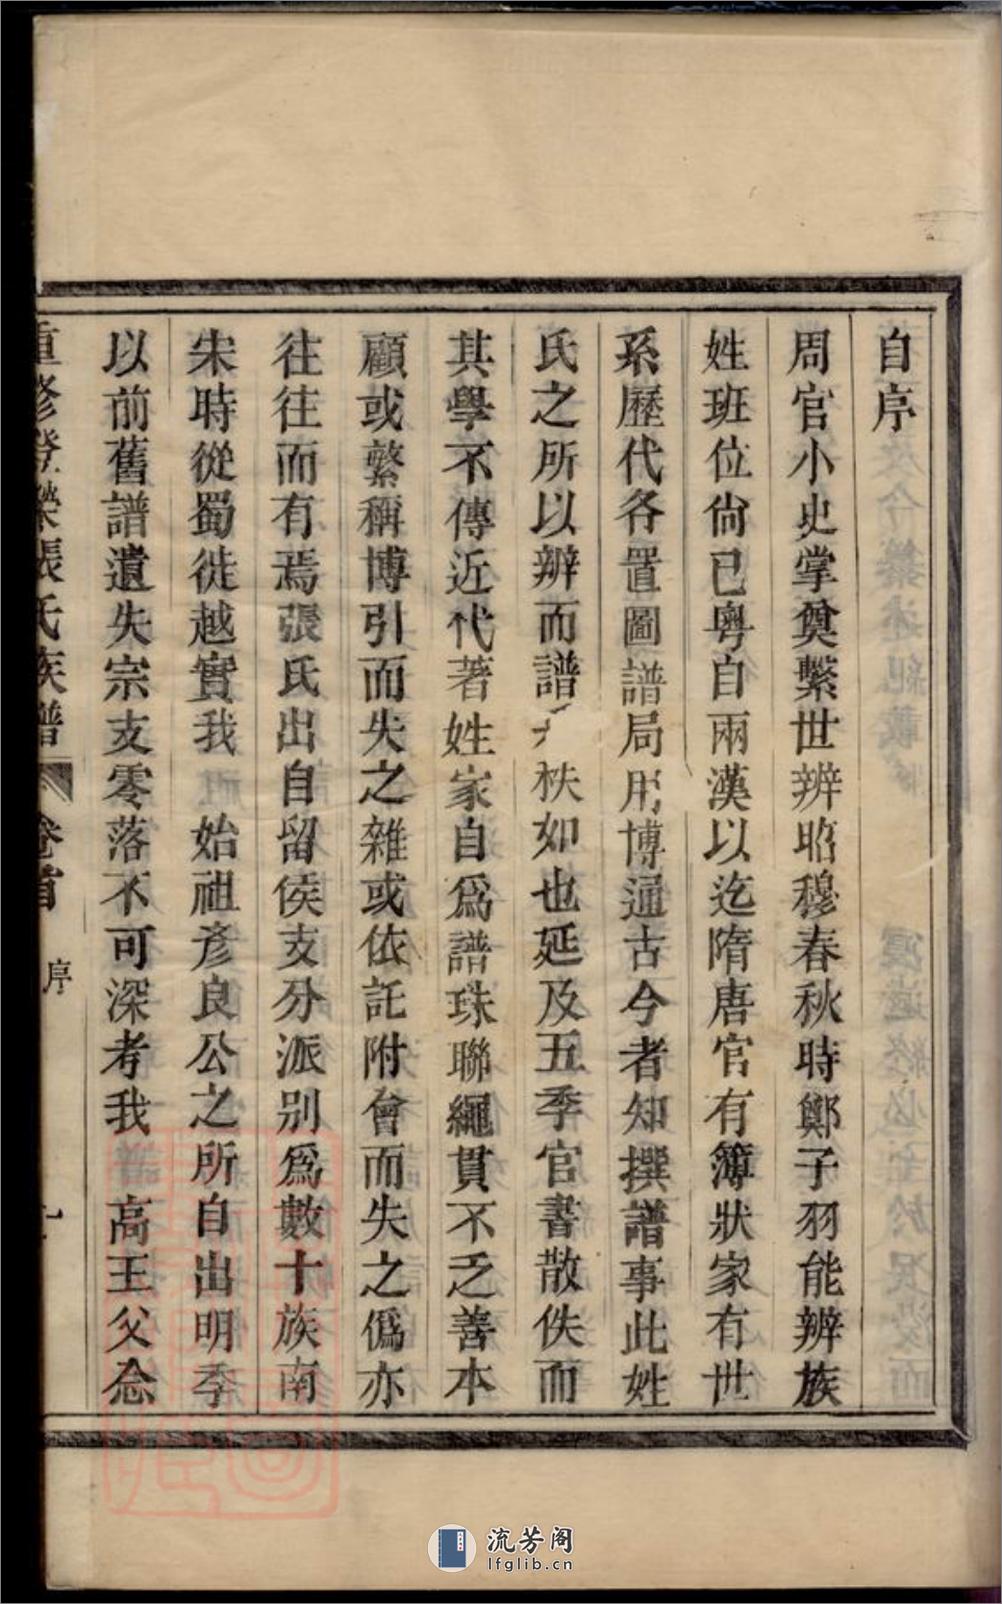 自序
周官小史掌奠繫世辨昭穆春秋時鄭子羽能辨族
姓班位尙已粤自兩漢以迄隋唐官有簿狀家有世
系歷代各置圖譜局用博通古今者知撰譜事此姓
氏之所以辨而譜秩如也延及五季官書散佚而
其學不傳近代著姓家自爲譜珠聯繩貫不乏善本
顧或繁稱博引而失之雜或依託附會而失之僞亦
往往而有焉張氏出自留侯支分派别爲數十族南
宋時從蜀徙越實我 始祖彥良公之所自出明季
以前舊譜遺失宗支零落不可深考我 高王父念
重修登榮張氏族譜 卷首 序
流芳阁
lfglib.cn